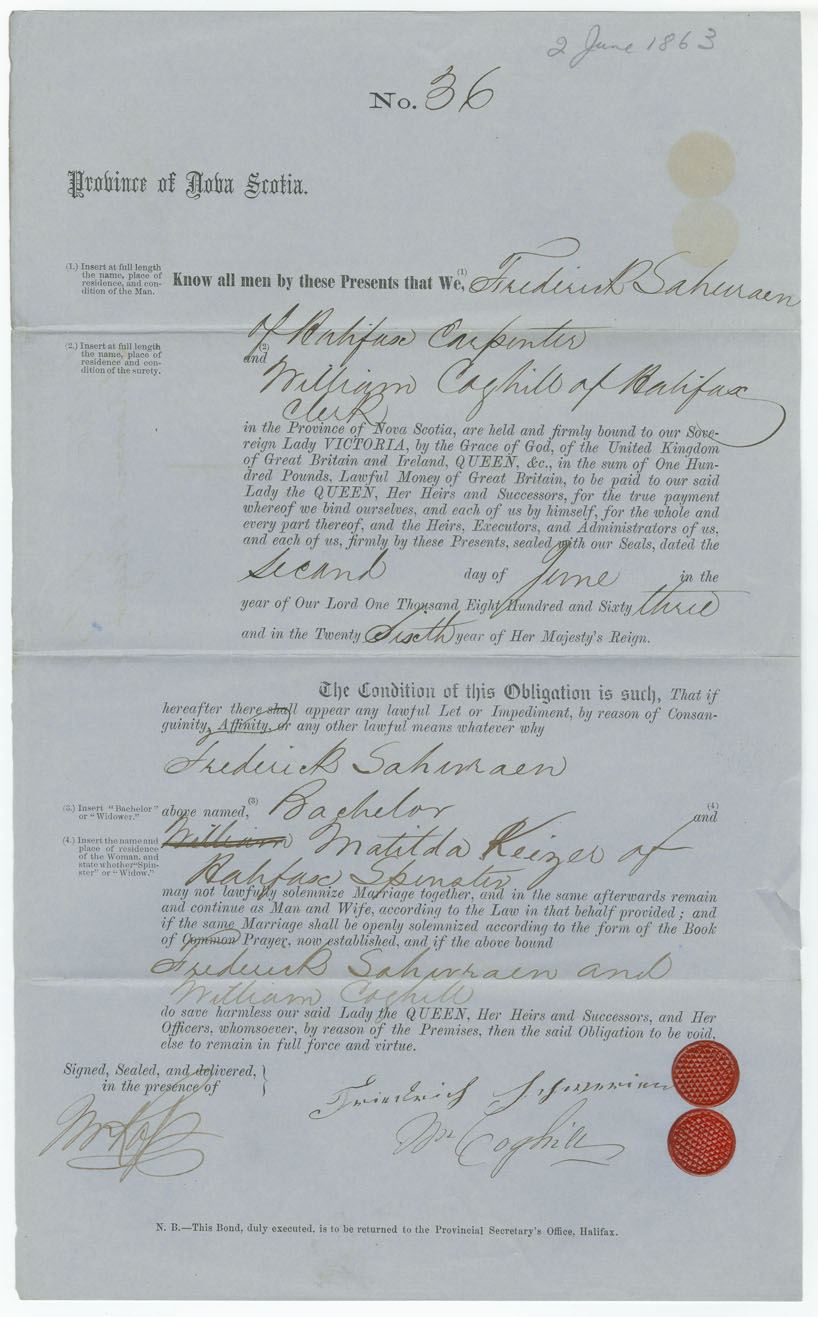 2 June 1863
No. 36
Province of Nova Scotia.
(1.) Insert at full length
the name, place of
residence, and con-
dition of the Man.
Know all men by these Presents that We, (1) Frederick Sahwraen
of Halifax Carpenter
(2.) Insert at full length
the name, place of
residence and con-
dition of the surety.
(2)
and
William Coghill of Halifax
Clerk
in the Province of Nova Scotia, are held and firmly bound to our Sove-
reign Lady VICTORIA, by the Grace of God, of the United Kingdom
of Great Britain and Ireland, QUEEN, &c., in the sum of One Hun-
dred Pounds, Lawful Money of Great Britain, to be paid to our said
Lady the QUEEN, Her Heirs and Successors, for the true payment
whereof we bind ourselves, and each of us by himself, for the whole and
every part thereof, and the Heirs, Executors, and Administrators of us,
and each of us, firmly by these Presents, sealed with our Seals, dated the
second day of June in the
year of Our Lord One Thousand Eight Hundred and Sixty three
and in the Twenty Sixth year of Her Majesty's Reign.
The Condition of this Obligation is such, That if
hereafter there shall appear any lawful Let or Impediment, by reason of Consan-
guinity, Affinity, or any other lawful means whatever why
Frederick Sahwraen
(3.) Insert "Bachelor"
or "Widower."
above named, (3) Bachelor (4) and
(4.) Insert the name and
place of residence
of the Woman, and
state whether "Spin-
ster" or "Widow."
William Matilda Keizer of
Halifax Spinster
may not lawfully solemnize Marriage together, and in the same afterwards remain
and continue as Man and Wife, according to the Law in that behalf provided; and
if the same Marriage shall be openly solemnized according to the form of the Book
of Common Prayer, now established, and if the above bound
Frederick Sahwraen and
William Coghill
do save harmless our said Lady the QUEEN, Her Heirs and Successors, and Her
Officers, whomsoever, by reason of the Premises, then the said Obligation to be void,
else to remain in full force and virtue.
Signed, Sealed, and delivered,
in the presence of
Friedrich
Wm Coghill
N. B.—This Bond, duly executed, is to be returned to the Provincial Secretary's Office, Halifax.